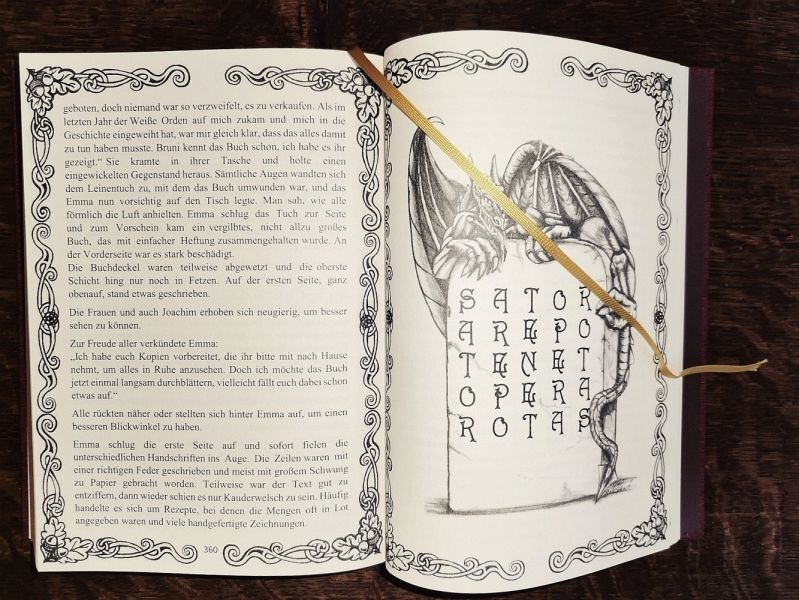 geboten, doch niemand war so verzweifelt, es zu verkaufen. Als im
letzten Jahr der Weiße Orden auf mich zukam und mich in die
Geschichte eingeweiht hat, war mir gleich klar, dass das alles damit
zu tun haben musste. Bruni kennt das Buch schon, ich habe es ihr
gezeigt.“ Sie kramte in ihrer Tasche und holte einen
eingewickelten Gegenstand heraus. Sämtliche Augen wandten sich
dem Leinentuch zu, mit dem das Buch umwunden war, und das
Emma nun vorsichtig auf den Tisch legte. Man sah, wie alle
förmlich die Luft anhielten. Emma schlug das Tuch zur Seite
und zum Vorschein kam ein vergilbtes, nicht allzu großes
Buch, das mit einfacher Heftung zusammengehalten wurde. An
der Vorderseite war es stark beschädigt.
Die Buchdeckel waren teilweise abgewetzt und die oberste
Schicht hing nur noch in Fetzen. Auf der ersten Seite, ganz
obenauf, stand etwas geschrieben.
Die Frauen und auch Joachim erhoben sich neugierig, um besser
sehen zu können.
Zur Freude aller verkündete Emma:
„Ich habe euch Kopien vorbereitet, die ihr bitte mit nach Hause
nehmt, um alles in Ruhe anzusehen. Doch ich möchte das Buch
jetzt einmal langsam durchblättern, vielleicht fällt euch dabei schon
etwas auf.“
Alle rückten näher oder stellten sich hinter Emma auf, um einen
besseren Blickwinkel zu haben.
Emma schlug die erste Seite auf und sofort fielen die
unterschiedlichen Handschriften ins Auge. Die Zeilen waren mit
einer richtigen Feder geschrieben und meist mit großem Schwung
zu Papier gebracht worden. Teilweise war der Text gut zu
entziffern, dann wieder schien es nur Kauderwelsch zu sein. Häufig
handelte es sich um Rezepte, bei denen die Mengen oft in Lot
angegeben waren und viele handgefertigte Zeichnungen.
360
S A T O R
A R E P O
T E N E T
O P E R A
R O T A S